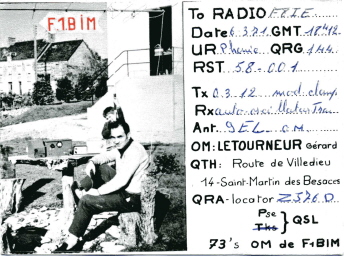 F1BIM
To RADIO F1IE
Date 6.3.71 GMT 18H12
UR Phonie QRG 144
RST 58-001
Tx 0.3.12 mod clamp
Rx
Ant. 9EL OM
OM: LETOURNEUR Gérard
QTH: Route de Villedieu
14-Saint-Martin des Besaces
QRA-locator ZJ76D
Pse
Tks } QSL
73's OM de F1BIM